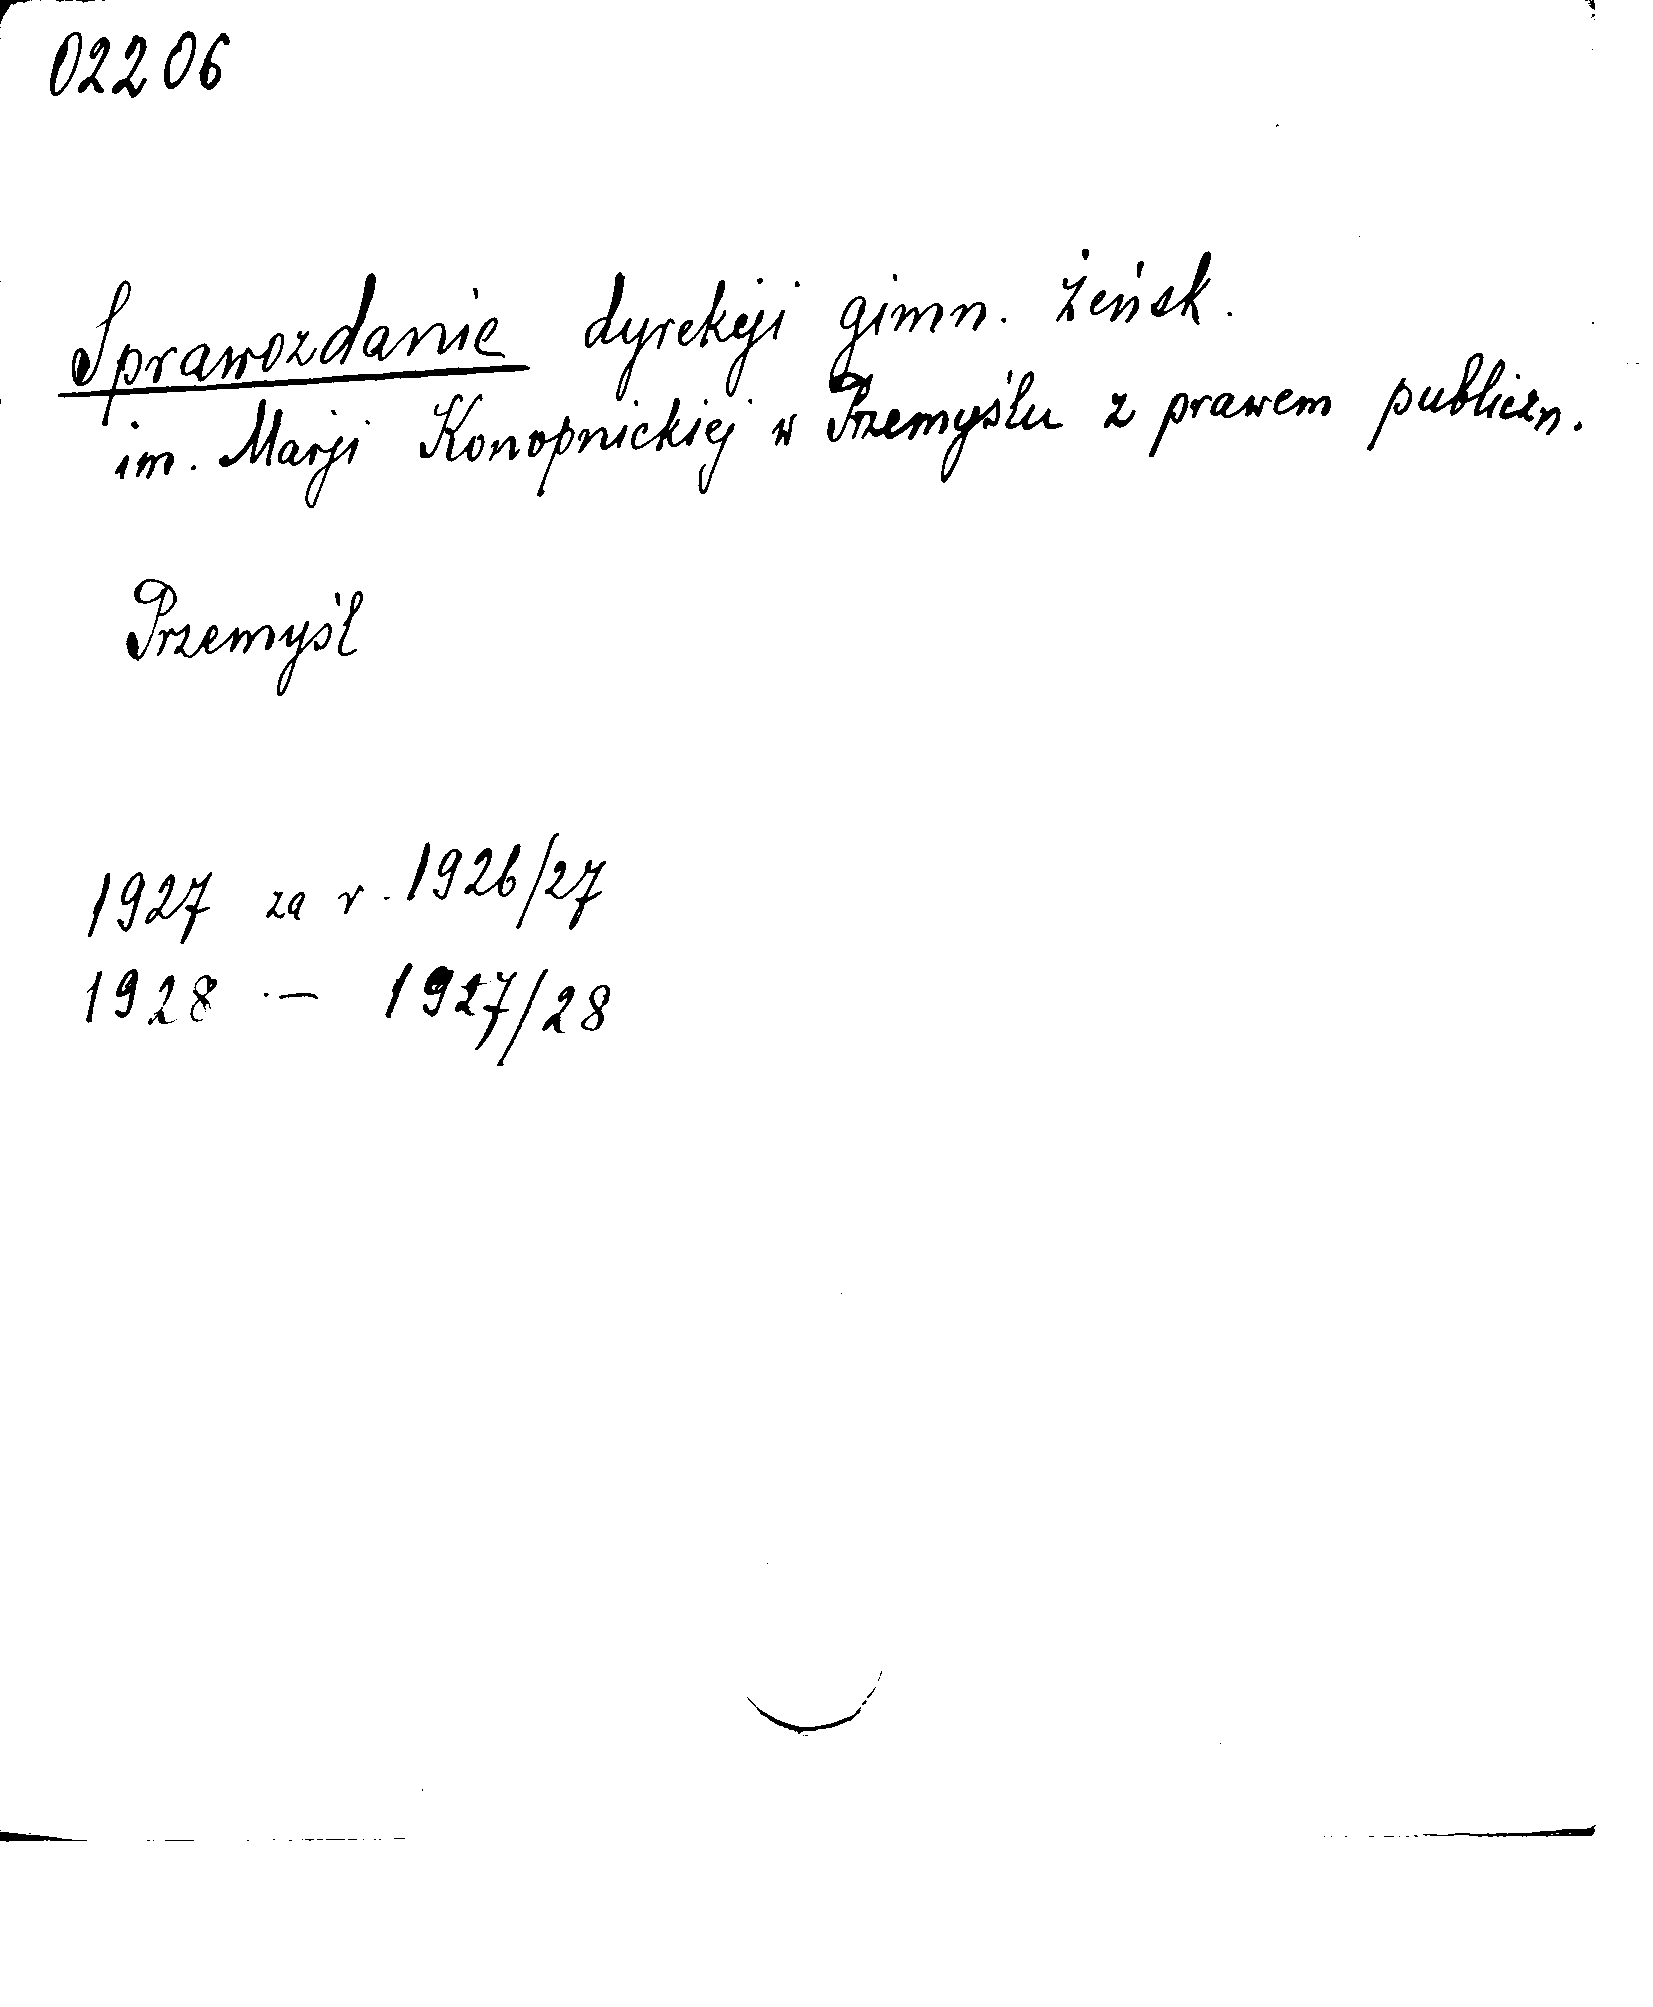 02206
Sprawozdanie dyrekcji gimn. żeńsk.
im. Marji Konopnickiej w Przemyślu z prawem publiczn.
Przemyśl
1927 za r. 1926/27
1928 .— 1927/28